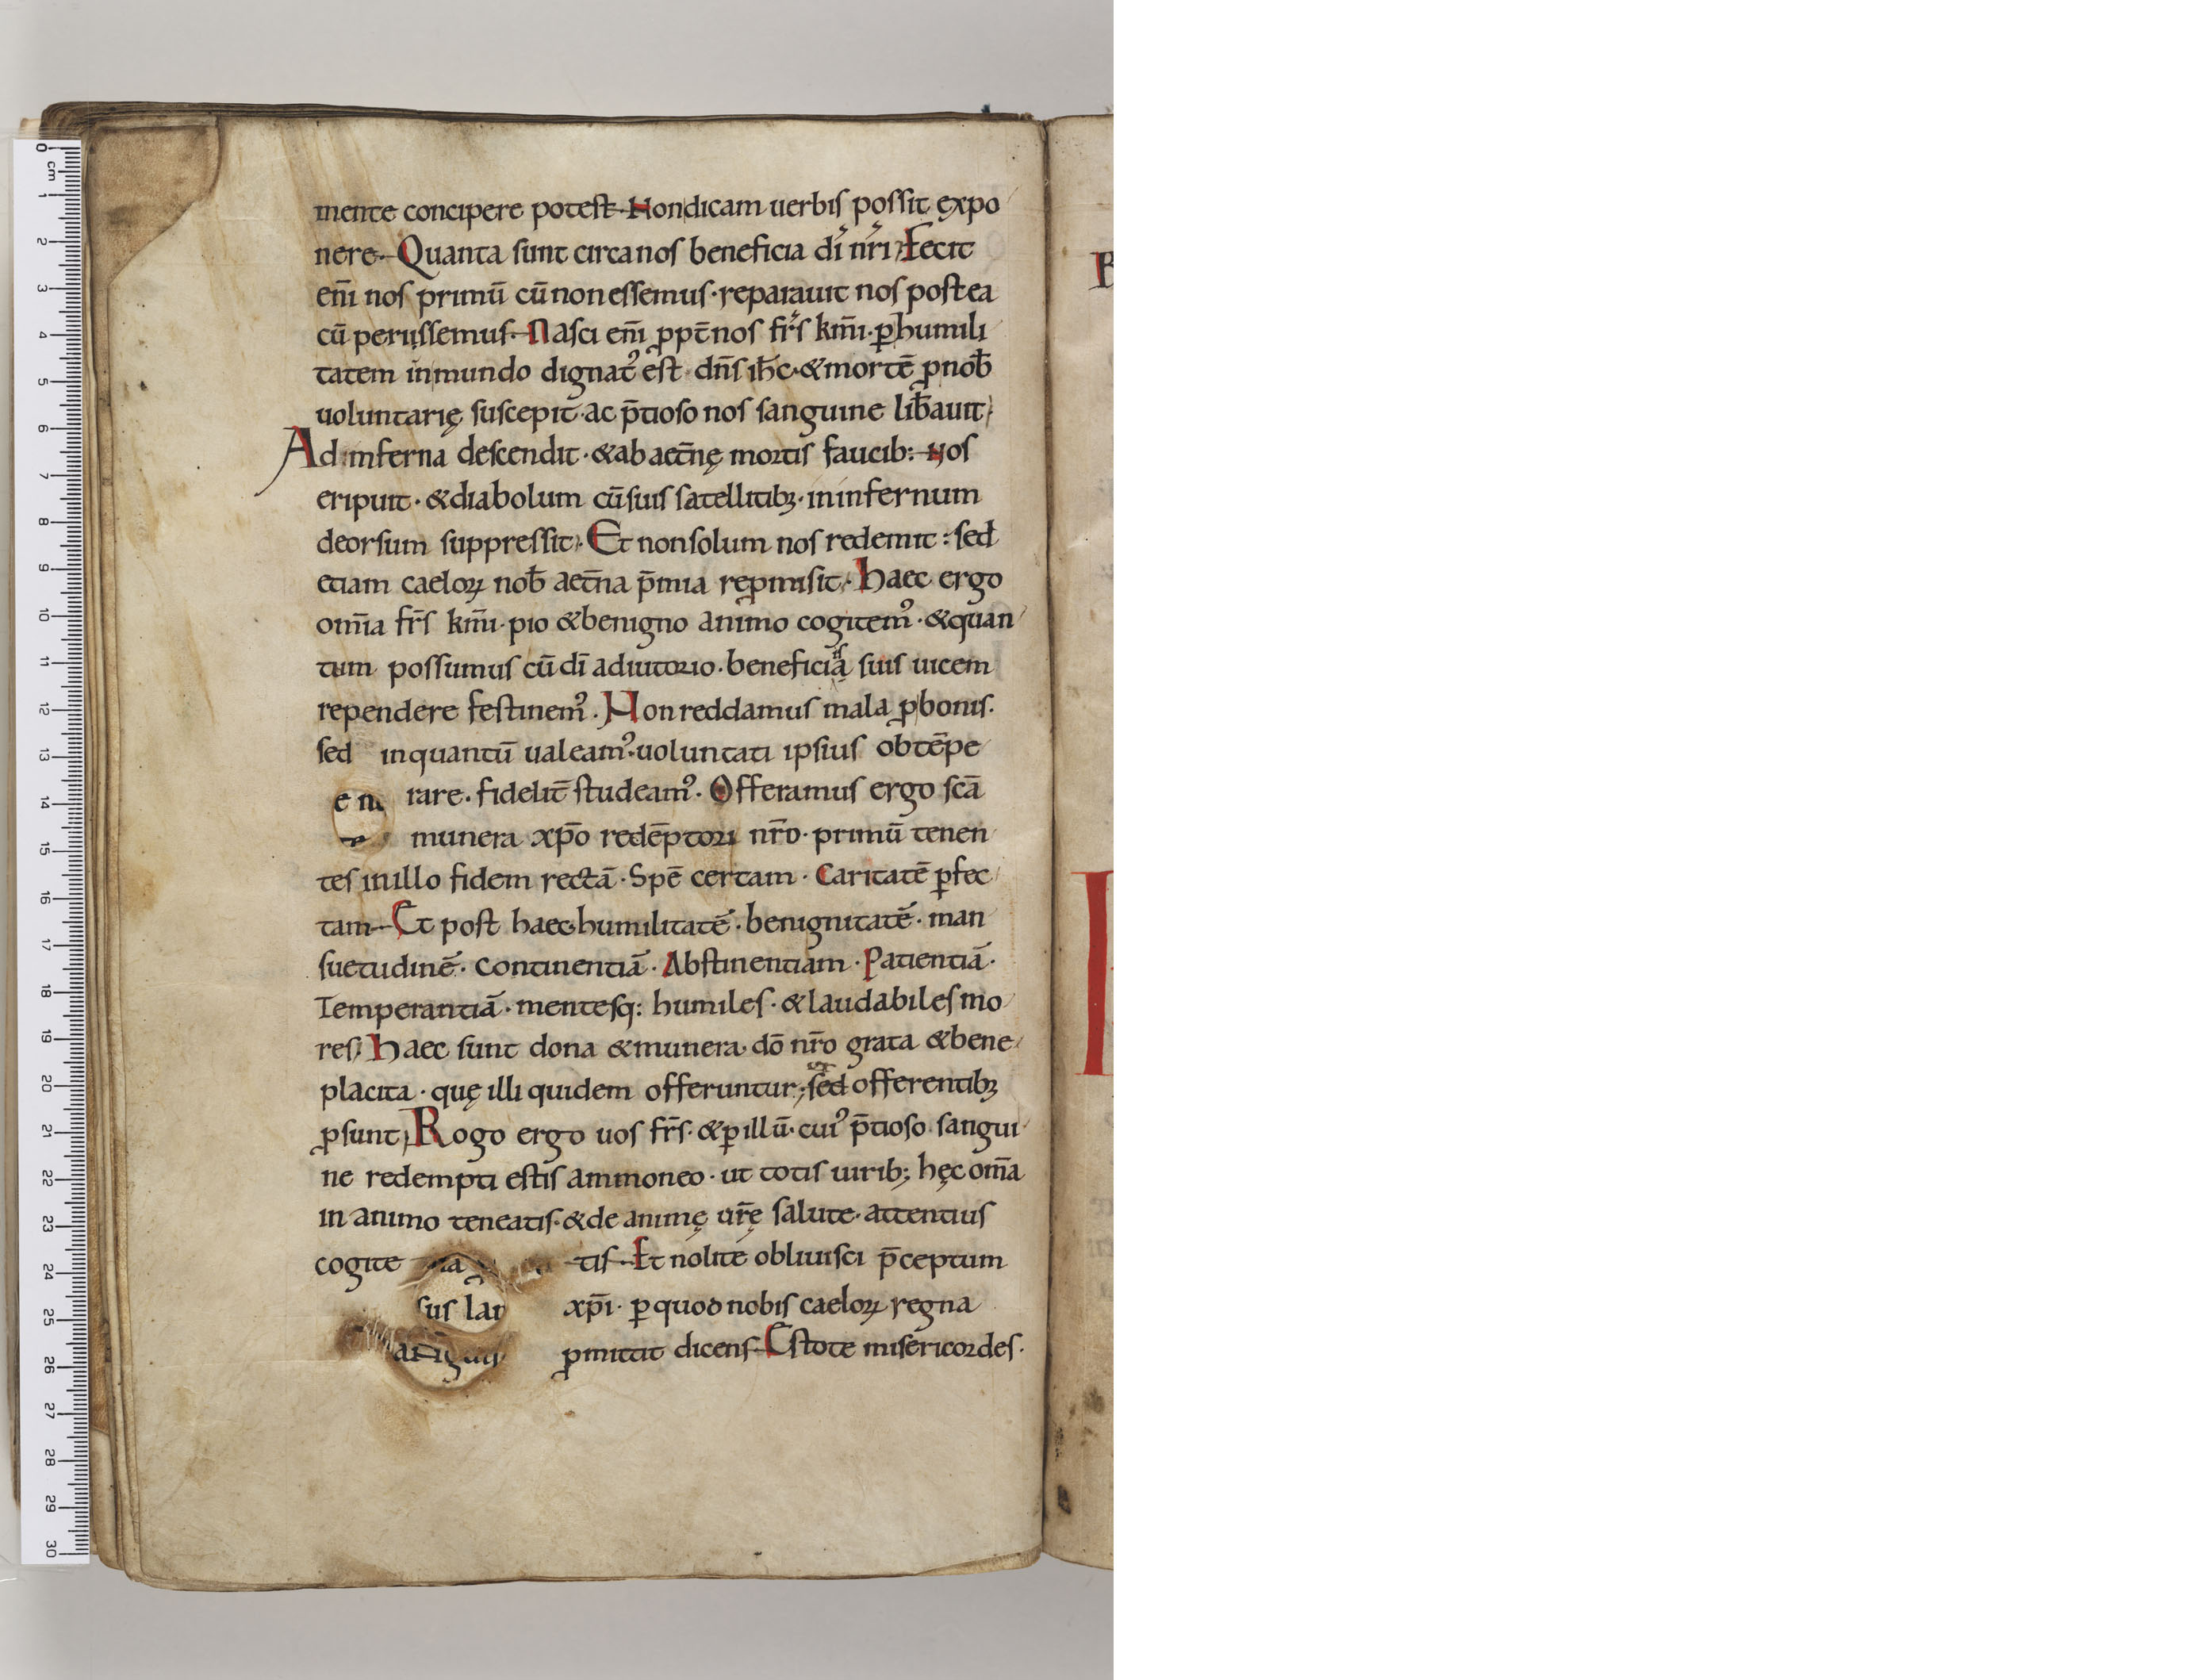 mente concipere potest. Non dicam uerbis possit expo
nere. Quanta sunt circa nos beneficia dī nr̄i; Fecit
enī nos primū cū non essemus. reparauit nos postea
cū perissemus. Nasci enī ꝓpt̄ nos fr̄s km̄i. ꝑ humili
tatem in mundo dignatꝰ est dn̄s ih̄c. & mortē ꝓ nob̄
uoluntarię suscepit. ac p̄tioso nos sanguine lib̄auit;
Ad inferna descendit. & ab aet̄nę mortis faucib: nos
eripuit. & diabolum cū suis satellitibꝫ. in infernum
deorsum suppressit. Et non solum nos redemit: sed
etiam caeloꝝ nob̄ aet̄na p̄mia reꝓmisit. Haec ergo
om̄ia fr̄s km̄i. pio & benigno animo cogitemꝰ. & quan
tum possumus cū dī adiutorio. beneficiạis suis uicem
rependere festinemꝰ. Non reddamus mala ꝓ bonis.
sed in quantū ualeamꝰ. uoluntati ipsius obtēpe
rare. fidelit̄ studeamꝰ. Offeramus ergo scā
munera xp̄o redēptori nr̄o. primū tenen
tes in illo fidem rectā. Spē certam. Caritatē ꝑfec
tam. Et post haec humilitatē. benignitatē. man
suetudinē. Continentiā. Abstinentiam. Patientiā.
Temperantiā. mentesq: humiles. & laudabiles mo
res; Haec sunt dona & munera dō nr̄o grata & bene
placita. quę illi quidem offeruntur; sed offerentibꝫ
ꝓsunt; Rogo ergo uos fr̄s. & ꝑ illū. cuiꝰ p̄tioso sangui
ne redempti estis ammoneo. ut totis uirib; hęc om̄a
in animo teneatis. & de animę ur̄ę salute. attentius
cogite tis. Et nolite obliuisci p̄ceptum
sus lar xp̄i. ꝑ quod nobis caeloꝝ regna
ꝓmittit dicens. Estote misericordes.